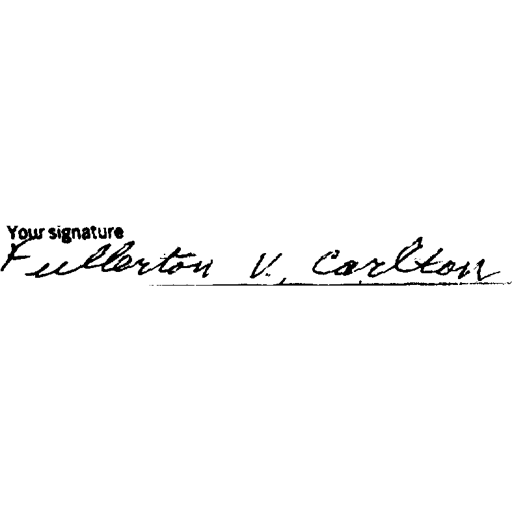 Your signature
Fullerton V. Carlton